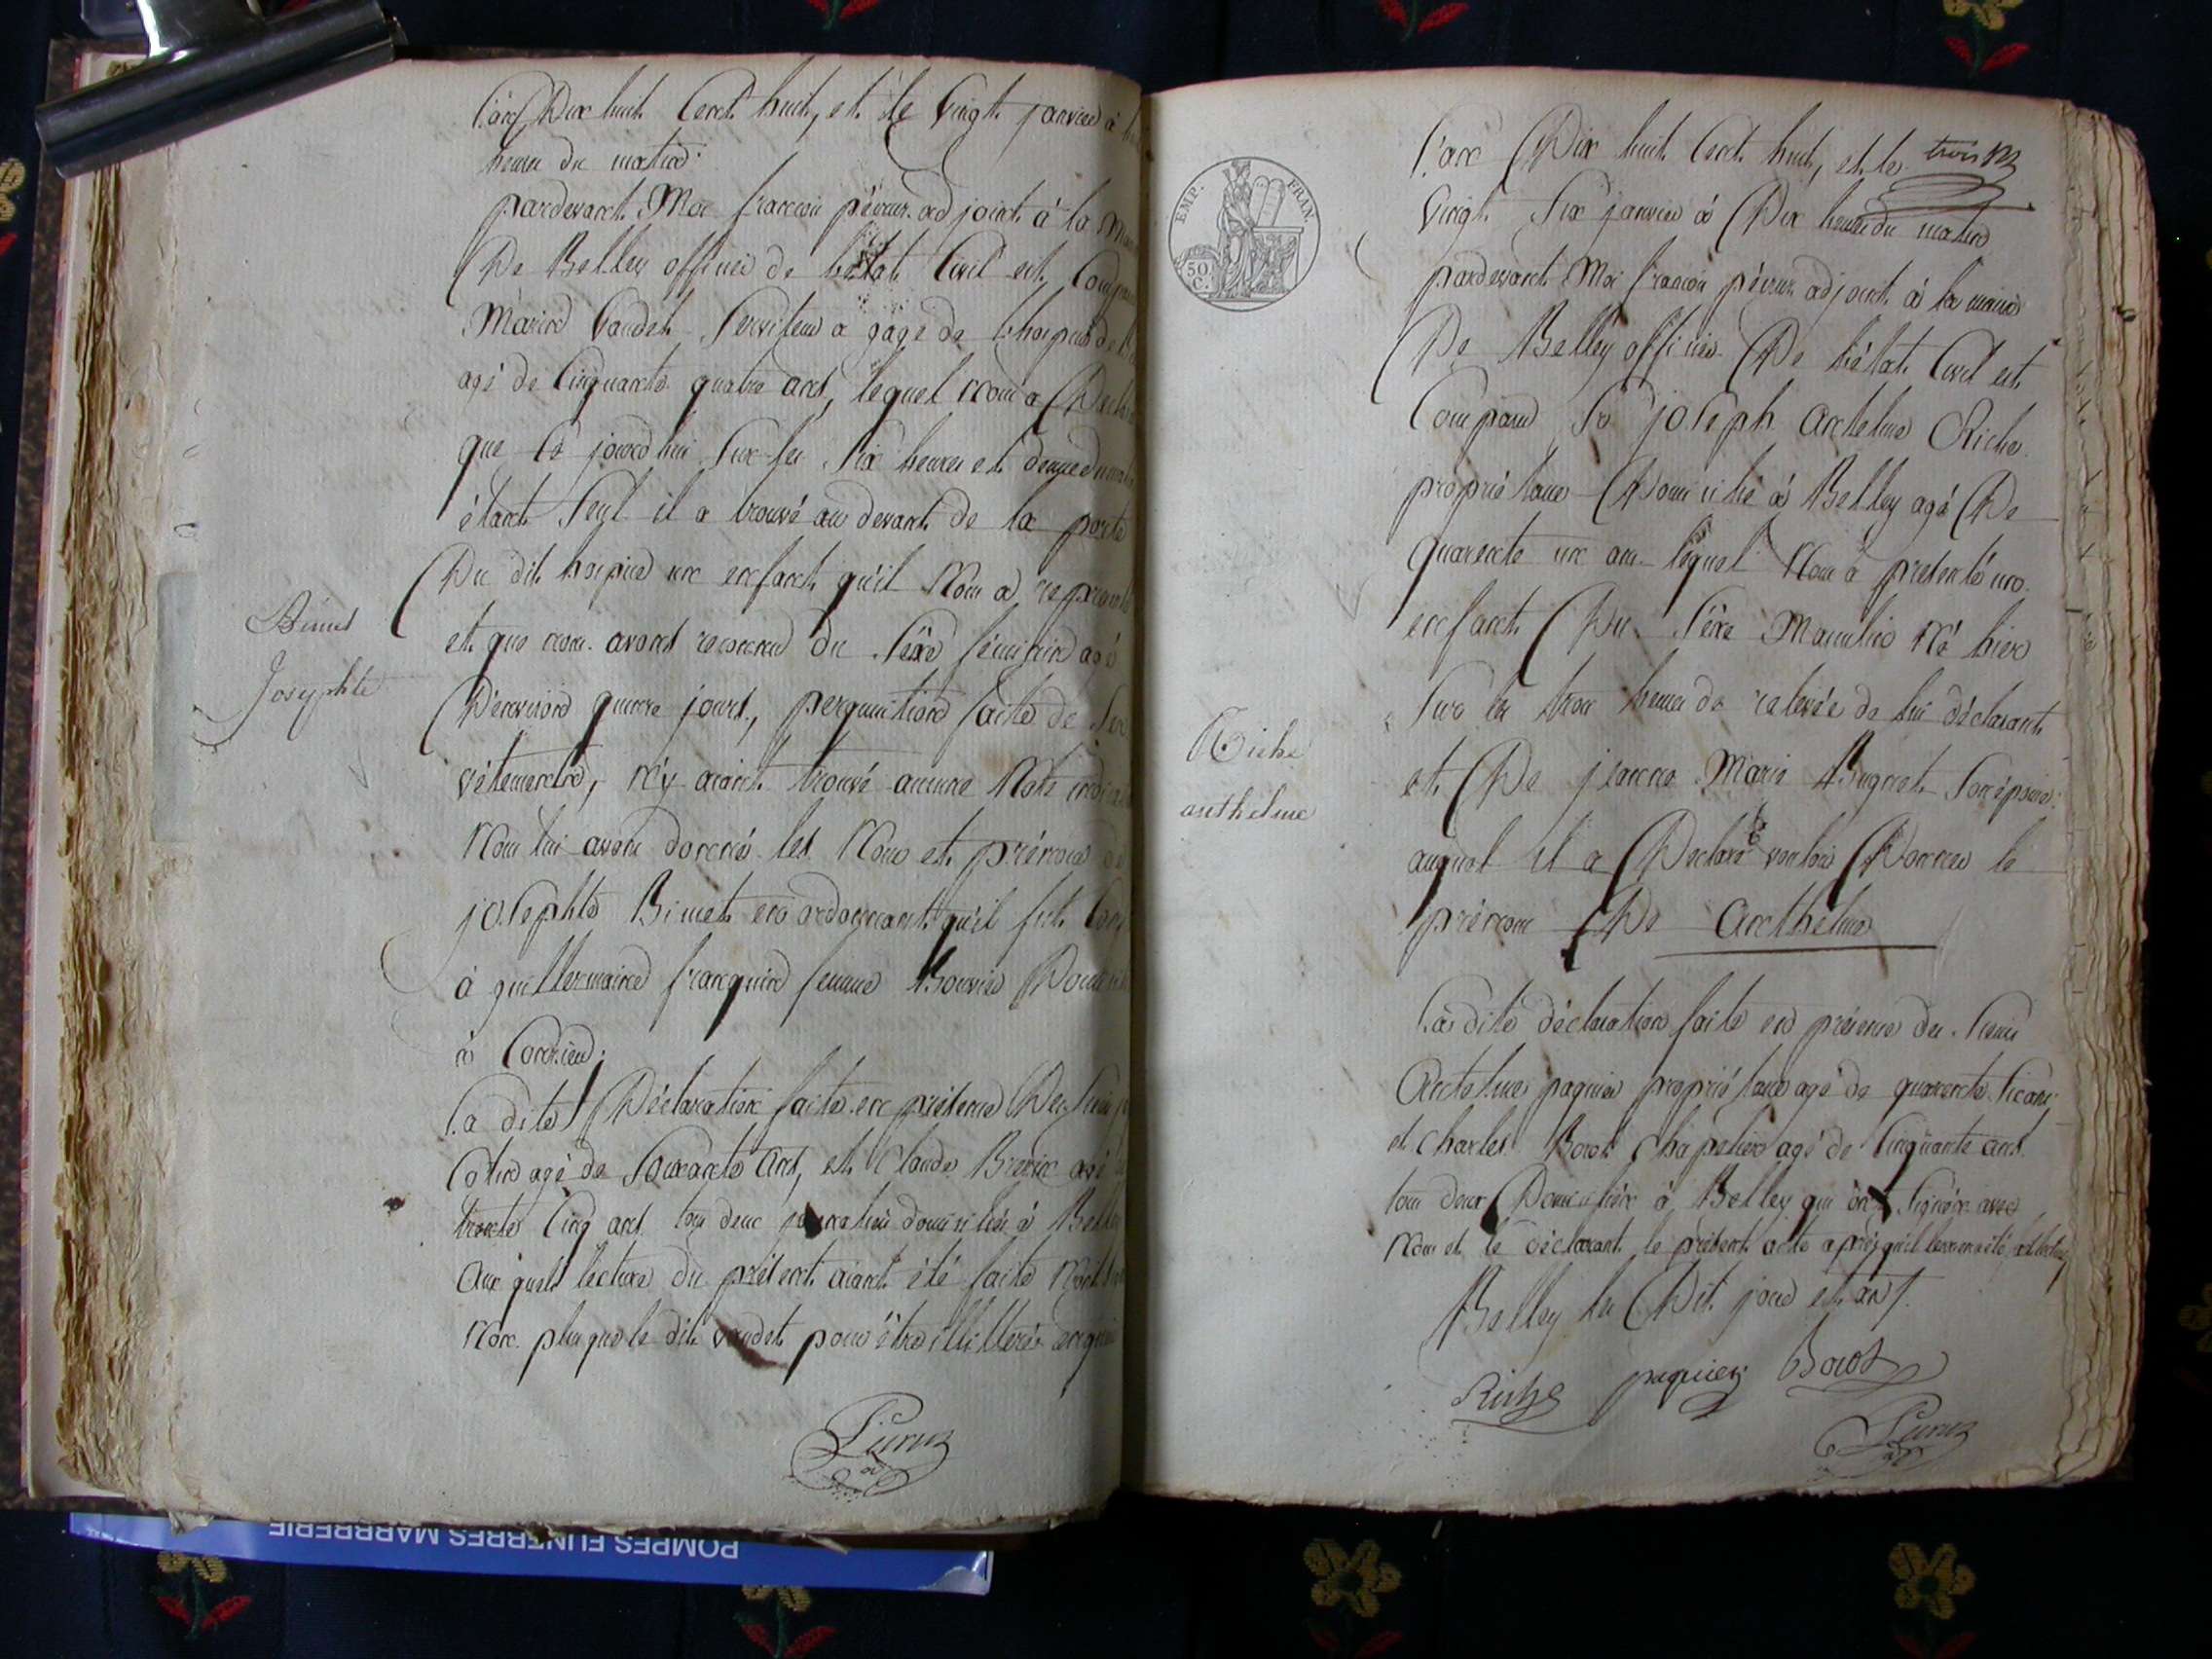 L'an Dix huit Cent huit, et le Vingt janvier à
heures du matin
pardevant Moi françois pévrur adjoint à la
De Belley officier de l'état Civil est
Marin Vaudet Serviteur a gage de l'hospice de
agé de Cinquante quatre ans, lequel nous a
que ce jourd'hui Sur les Six heures et demie du
étant Seul il a trouvé au devant de la porte
Du dit hospice un enfant qu'il Nous a
et que nous avons reconnu du Séxe féminin agé
D'environ quinze jours, perquisition faite de
vétements, n'y aiant trouvé aucune Note
Nous lui avons donné les Nom et prénom de
josephte Binet en ordonnant qu'il fut
à guillermaine franquin femme Bouvier
à
La dite Déclaration faite en présence
Colin agé de Soixante ans, et Claude agé
trente Cinq ans tous deux domiciliés à
aux quels lecture du présent aiant été faite
Non plus que le dit vaudet pour être illittérés
Binet
Josephte
EMP. FRAN
50 C.
L'an Dix huit Cent huit, et le trois
Vingt Six janvier à Dix heures du matin
pardevant Moi françois pévrur adjoint à la mairie
De Belley officier De l'état Civil est
Comparu Sr joseph Antelme Riche
propriétaire Domicilié à Belley agé De
quarente un ans lequel Nous à presenté un
enfant Du Séxe Masculin Né hier
Sur les trois heures de relevée de lui déclarant
et De jeanne Marie Bugnet Son épouse
auquel il a Declaré vouloir Donner le
prénom De Anthelme
La dite déclaration faite en présence des Sieurs
Antelme paquier propriétaire agé de quarente
et Charles Borot Chapelier agé de Cinquante ans
tous deux Domiciliés à Belley qui ont Signés avec
Nous et le déclarant le présent acte après
Belley les Dit jour et an
Riche
anthelme
Riche paquier Borot
POMPES FUNEBRES MARBRERIE